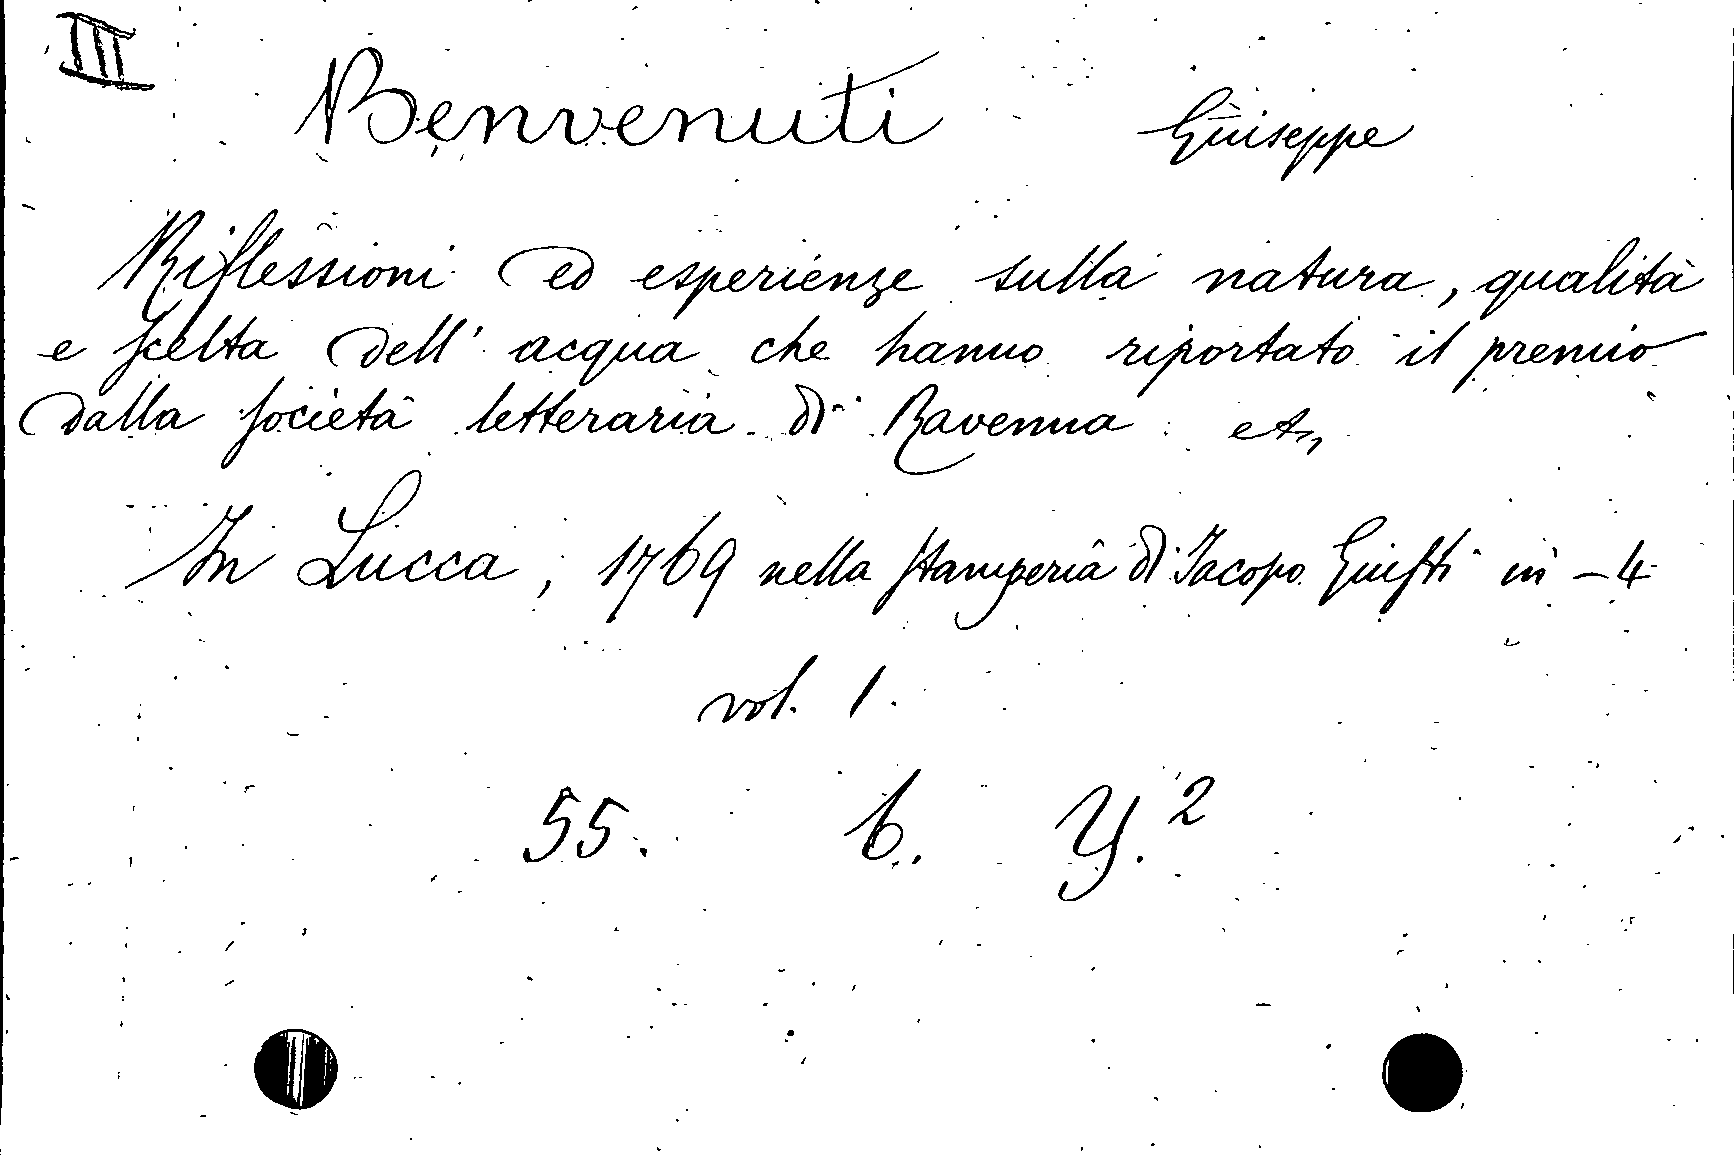 III
Benvenuti Giuseppe
Riflessioni ed esperienze sulla natura, qualità
e scelta dell' acqua che hanno riportato il premio
dalla società letteraria di Ravenna etc,
In Lucca, 1769 nella stamperia di Jacopo Giusti in-4
vol. 1.
55. b. Y.²